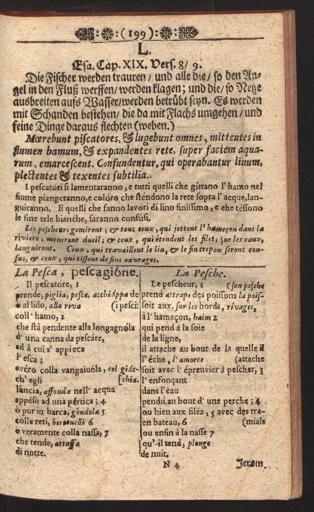 :(199):
L.
Esa. Cap. XIX. Vers. 8/ 9.
Die Fischer werden trauren/ und alle die/ so den An-
gel in den Fluß werffen/ werden klagen; und die/ so Netze
ausbreiten aufs Wasser/ werden betrübt seyn. Es werden
mit Schanden bestehen/ die da mit Flachs umgehen/ und
feine Dinge daraus flechten (weben.)
Mœrebunt piscatores, & lugebunt omnes, mittentes in
flumen hamum, & expandentes rete, super faciem aqua-
rum, emarcescent. Confundentur, qui operabantur linum,
plectentes & texentes subtilia.
I pescatori si lamentaranno, e tutti quelli che gittano l'hamo nel
fiume piangeranno, e colóra che sténdono la rete sopra l'acque, lan-
guiranno. E quelli che fanno lavóri di lino finissimo, e che téssono
le fine tele bianche, saranno confusi.
Les pescheurs gemiront; & tous ceux, qui jettent l'hameçon dans la
riviere, meneront dueil; & ceux, qui étendent les filets sur les eaux,
languiront. Ceux, qui travaillent le lin, & le fin crepon seront con-
fus, & ceux, qui tissent de fins ouvrages.
La Pesca, pescagióne.
Il pescatore, 1
prende, piglia, pesca, acchiáppa de
al lido, alla riva (i pesci
coll' hamo, 2
che stà pendente alla longagnóla
d' una canna da pescáre,
ed à cui s' appicca
l' esca;
overo colla vangaiuóla, col giác-
ch' egli (chio.
lancia, affonda nell' acqua
appeso ad una pértica; 4
o pur in barca, góndola 5
colle reti, bertuelli 6
o veramente colla nassa, 7
che tende, attuffa
di notte.
La Pesche.
Le pescheur, 1 (son pesche
prend attrape des poissons la pois-
soit aux, sur les bords, rivages,
à l' hameçon, haim 2
qui pend à la soie
de la ligne,
il attache au bout de la quelle il
l'éche, l' amorce (attache
soit avec l' épreuvier à pescher, 3
l' enfonçant
dans l' eáu
pendu au bout d' une perche; 4
ou bien aux filéz, 5 avec des tra-
en bateau, 6 (mials
ou enfin à la nasse 7
qu'-il tend, plonge
de nuit.
N 4
Jerem.